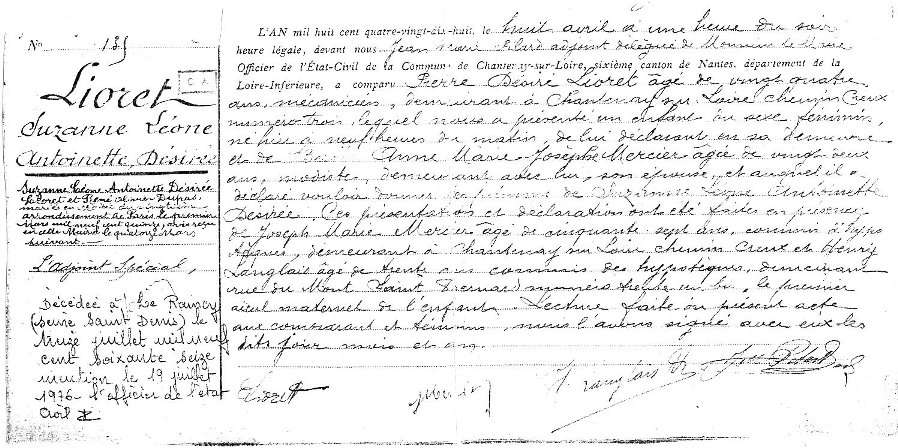 No 135
C A
Lioret
Suzanne Léone
Antoinette Désirée
Suzanne Léone Antoinette Désirée
Lioret et René Dupas,
arrondissement de Paris le premier
mars mil neuf cent quinze, avis reçu
en cette Mairie le quatorze Mars
suivant.
L'adjoint Spécial,
Décédée à Le Raincy
(Seine Saint Denis) le
treize juillet mil neuf
cent soixante seize
mention le 19 juillet
1976 l'officier de l'état
civil
L'AN mil huit cent quatre-vingt-dix-huit, le huit avril à une heure du soir
heure légale, devant nous Jean Marie adjoint délégué de Monsieur le Maire
Officier de l'État-Civil de la Commune de Chantenay-sur-Loire, sixième canton de Nantes, département de la
Loire-Inférieure, a comparu Pierre Désiré Lioret âgé de vingt quatre
ans, mécanicien, demeurant à Chantenay sur Loire chemin Creux
numéro trois, lequel nous a présenté un enfant du sexe féminin,
né hier à neuf heures du matin, de lui déclarant en sa demeure
et de Anne Marie Josèphe Mercier âgée de vingt deux
ans, modiste, demeurant avec lui, son épouse, et auquel il a
déclaré vouloir donner les prénoms de Suzanne Léone Antoinette
Désirée. Ces présentation et déclaration ont été faites en présence
de Joseph Marie Mercier âgé de cinquante sept ans, commis d'hypo
thèques, demeurant à Chantenay sur Loire chemin Creux et Henri
Langlais âgé de trente ans commis des hypothèques, demeurant
rue du Mont Saint Bernard numéro, le premier
aïeul maternel de l'enfant. Lecture faite du présent acte
aux comparant et témoins, nous l'avons signé avec eux les
dits jour mois et an.
Lioret
Langlais